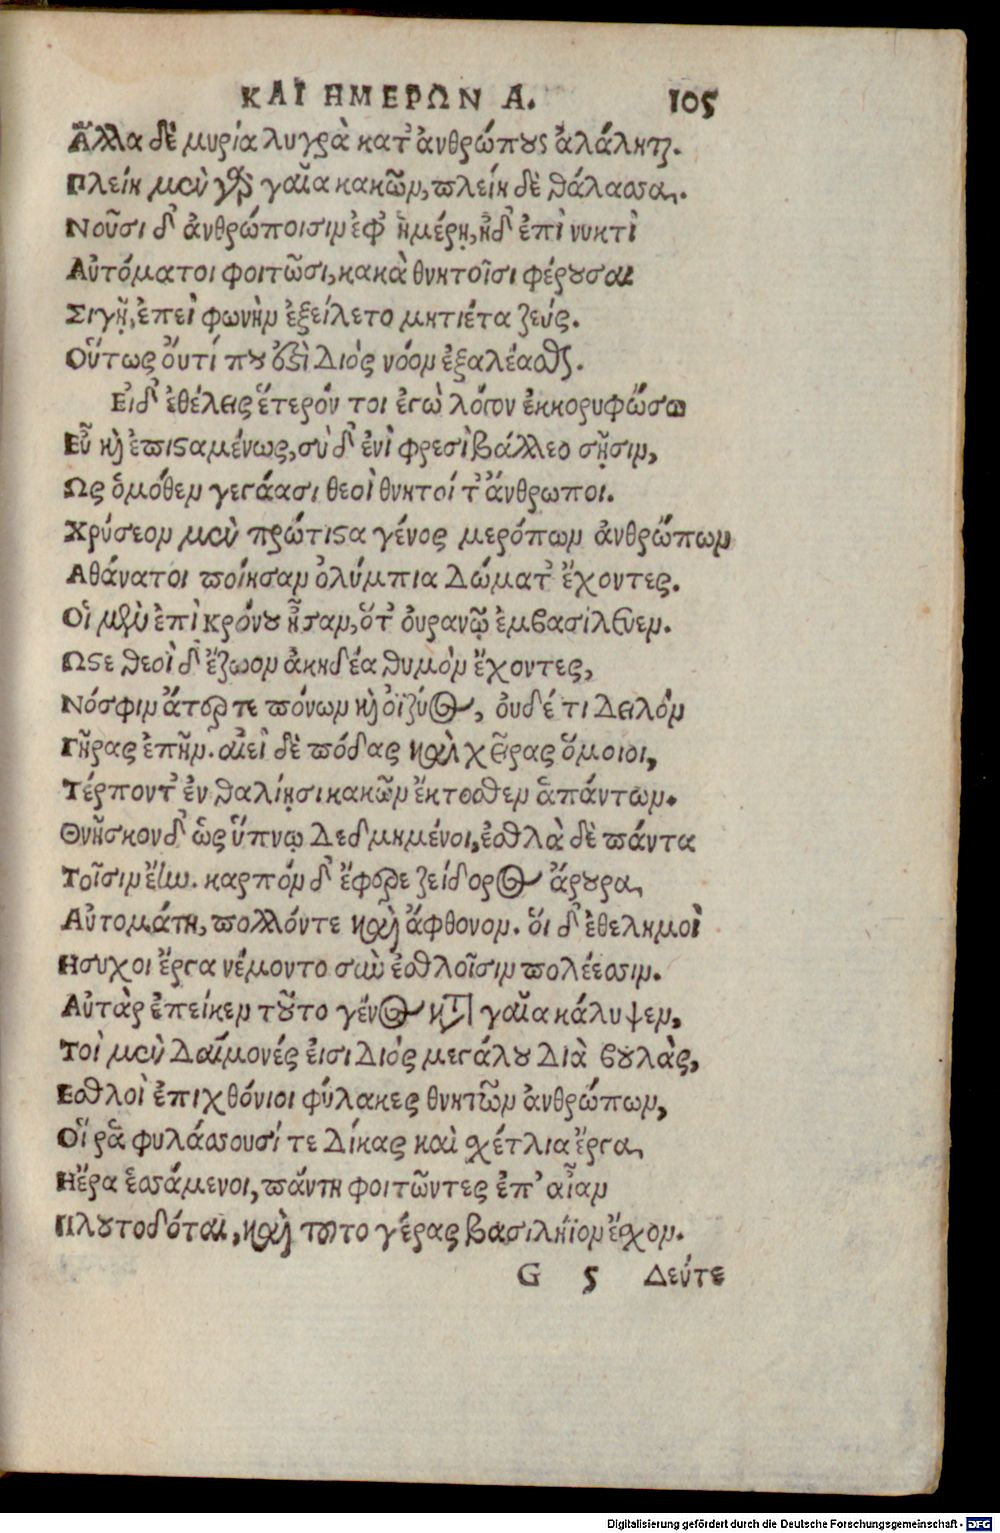 ΚΑΙ ΗΜΕΡΩΝ Α. 105
Ἄλλα δὲ μυρία λυγρὰ κατ᾽ ἀνθρώπους ἀλάληται.
Πλείη μὲν γὰρ γαῖα κακῶν, πλείη δὲ θάλασσα.
Νοῦσι δ᾽ ἀνθρώποισιν ἐφ᾽ ἡμέρῃ, ἠδ᾽ ἐπὶ νυκτὶ
Αὐτόματοι φοιτῶσι, κακὰ θνητοῖσι φέρουσαι
Σιγῇ, ἐπεὶ φωνὴν ἐξείλετο μητιέτα ζεύς.
Οὕτως οὔτί που ἐςὶ Διὸς νόον ἐξαλέασθαι.
Εἰ δ᾽ ἐθέλεις ἕτερόν τοι ἐγὼ λόγον ἐκκορυφώσω
Εὖ καὶ ἐπιςαμένως, σὺ δ᾽ ἐνὶ φρεσὶ βάλλεο σῇσιν,
Ως ὁμόθεν γεγάασι θεοὶ θνητοί τ᾽ ἄνθρωποι.
Χρύσεον μὲν πρώτιςα γένος μερόπων ἀνθρώπων
Αθάνατοι ποίησαν ὀλύμπια δώματ᾽ ἔχοντες.
Οἱ μὲν ἐπὶ κρόνου ἦσαν, ὅτ᾽ οὐρανῷ ἐμβασίλευεν.
Ωςε θεοὶ δ᾽ ἔζωον ἀκηδέα θυμὸν ἔχοντες,
Νόσφιν ἄτερ τε πόνων καὶ ὀϊζύος, οὐδέ τι δειλὸν
Γῆρας ἐπῆν. αἰεὶ δὲ πόδας καὶ χεῖρας ὅμοιοι,
Τέρποντ᾽ ἐν θαλίῃσι κακῶν ἔκτοσθεν ἁπάντων.
Θνῆσκον δ᾽ ὡς ὕπνῳ δεδμημένοι, ἐσθλὰ δὲ πάντα
Τοῖσιν ἔην. καρπὸν δ᾽ ἔφερε ζείδορος ἄρουρα,
Αὐτομάτη, πολλόντε καὶ ἄφθονον. ὅι δ᾽ ἐθελημοὶ
Ησυχοι ἔργα νέμοντο σὺν ἐσθλοῖσιν πολέεσσιν.
Αὐτὰρ ἐπείκεν τοῦτο γένος κατὰ γαῖα κάλυψεν,
Τοὶ μὲν δαίμονές εἰσι Διὸς μεγάλου διὰ βουλὰς,
Εσθλοὶ ἐπιχθόνιοι φύλακες θνητῶν ἀνθρώπων,
Οἵ ῥα φυλάσσουσί τε δίκας καὶ σχέτλια ἔργα,
Ηέρα ἑσσάμενοι, πάντη φοιτῶντες ἐπ᾽ αἶαν
Πλουτοδόται, καὶ τοῦτο γέρας βασιλήϊον ἔσχον.
G 5 Δεύτε
Digitalisierung gefördert durch die Deutsche Forschungsgemeinschaft - DFG